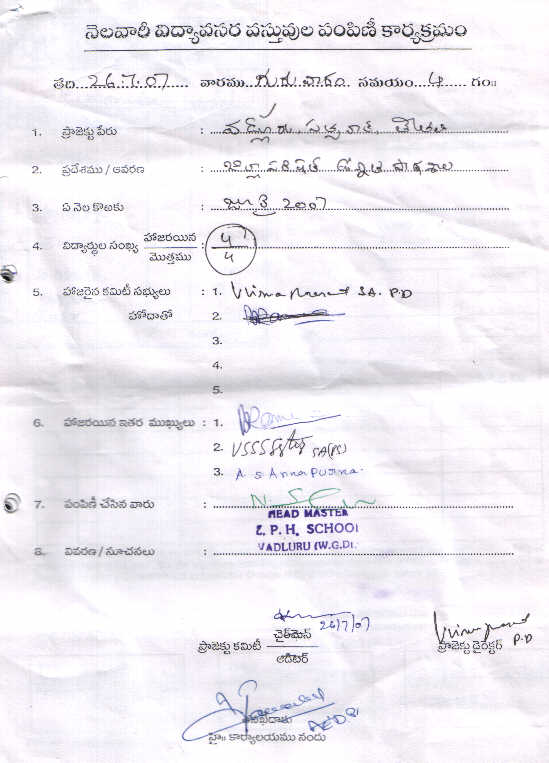 నెలవారీ విద్యావసర వస్తువుల పంపిణీ కార్యక్రమం
తది...26.7.07...... వారము..గురువారం. సమయం..4..... గం॥
1. ప్రాజెక్టు పేరు : ... వడ్లూరు,
2. ప్రదేశము / ఆవరణ : ... జిల్లా పరిషత్ ఉన్నత పాఠశాల
3. ఏ నెల కొఱకు : ... జూలై 2007
4. విద్యార్థుల సంఖ్య హాజరయిన / మొత్తము : 4 / 4
5. హాజరైన కమిటీ సభ్యులు : 1. SA. P.D
హోదాతో 2.
3.
4.
5.
6. హాజరయిన ఇతర ముఖ్యులు : 1.
2. SA(PS)
3. A. S Anna Purna.
7. పంపిణీ చేసిన వారు :
HEAD MASTER
Z. P. H. SCHOOL
VADLURU (W.G.Dt.
8. వివరణ / సూచనలు :
26/7/07
ప్రాజెక్టు కమిటీ చైర్‌మైన్ / ఆడిటర్
ప్రాజెక్టు డైరెక్టర్ P.D
హై॥ కార్యాలయము నందు